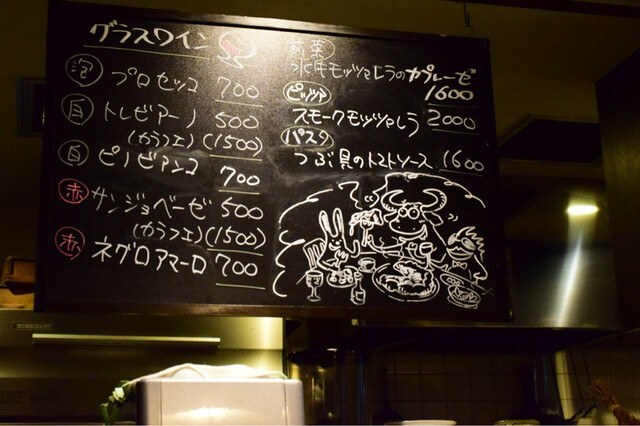 グラスワイン
泡 プロセッコ 700
白 トレビアーノ 500
(カラフェ) (1500)
白 ピノビアンコ 700
赤 サンジョベーゼ 500
(カラフェ) (1500)
赤 ネグロアマーロ 700
前菜
水牛モッツァレラのカプレーゼ
1600
ピッツァ
スモークモッツァレラ 2000
パスタ
つぶ貝のトマトソース 1600